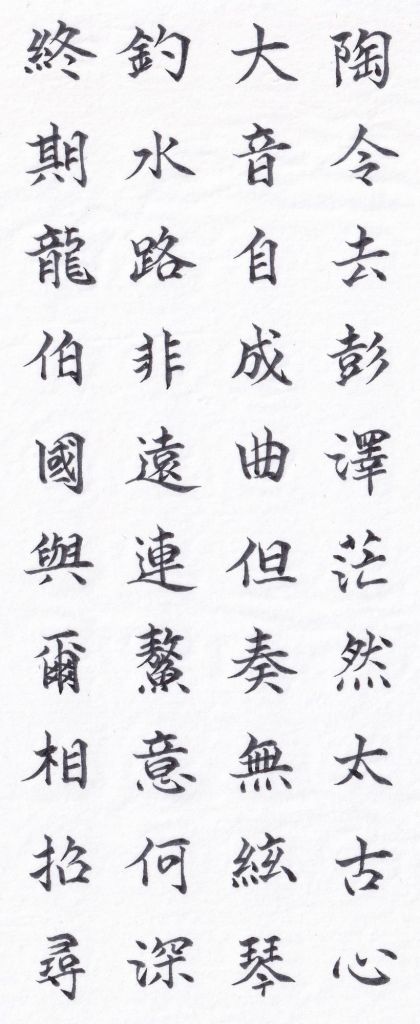 陶令去彭譯茫然太古心
大音自成曲但奏無絃琴
釣水路非遠連鰲意何深
終期龍伯國與爾相招尋